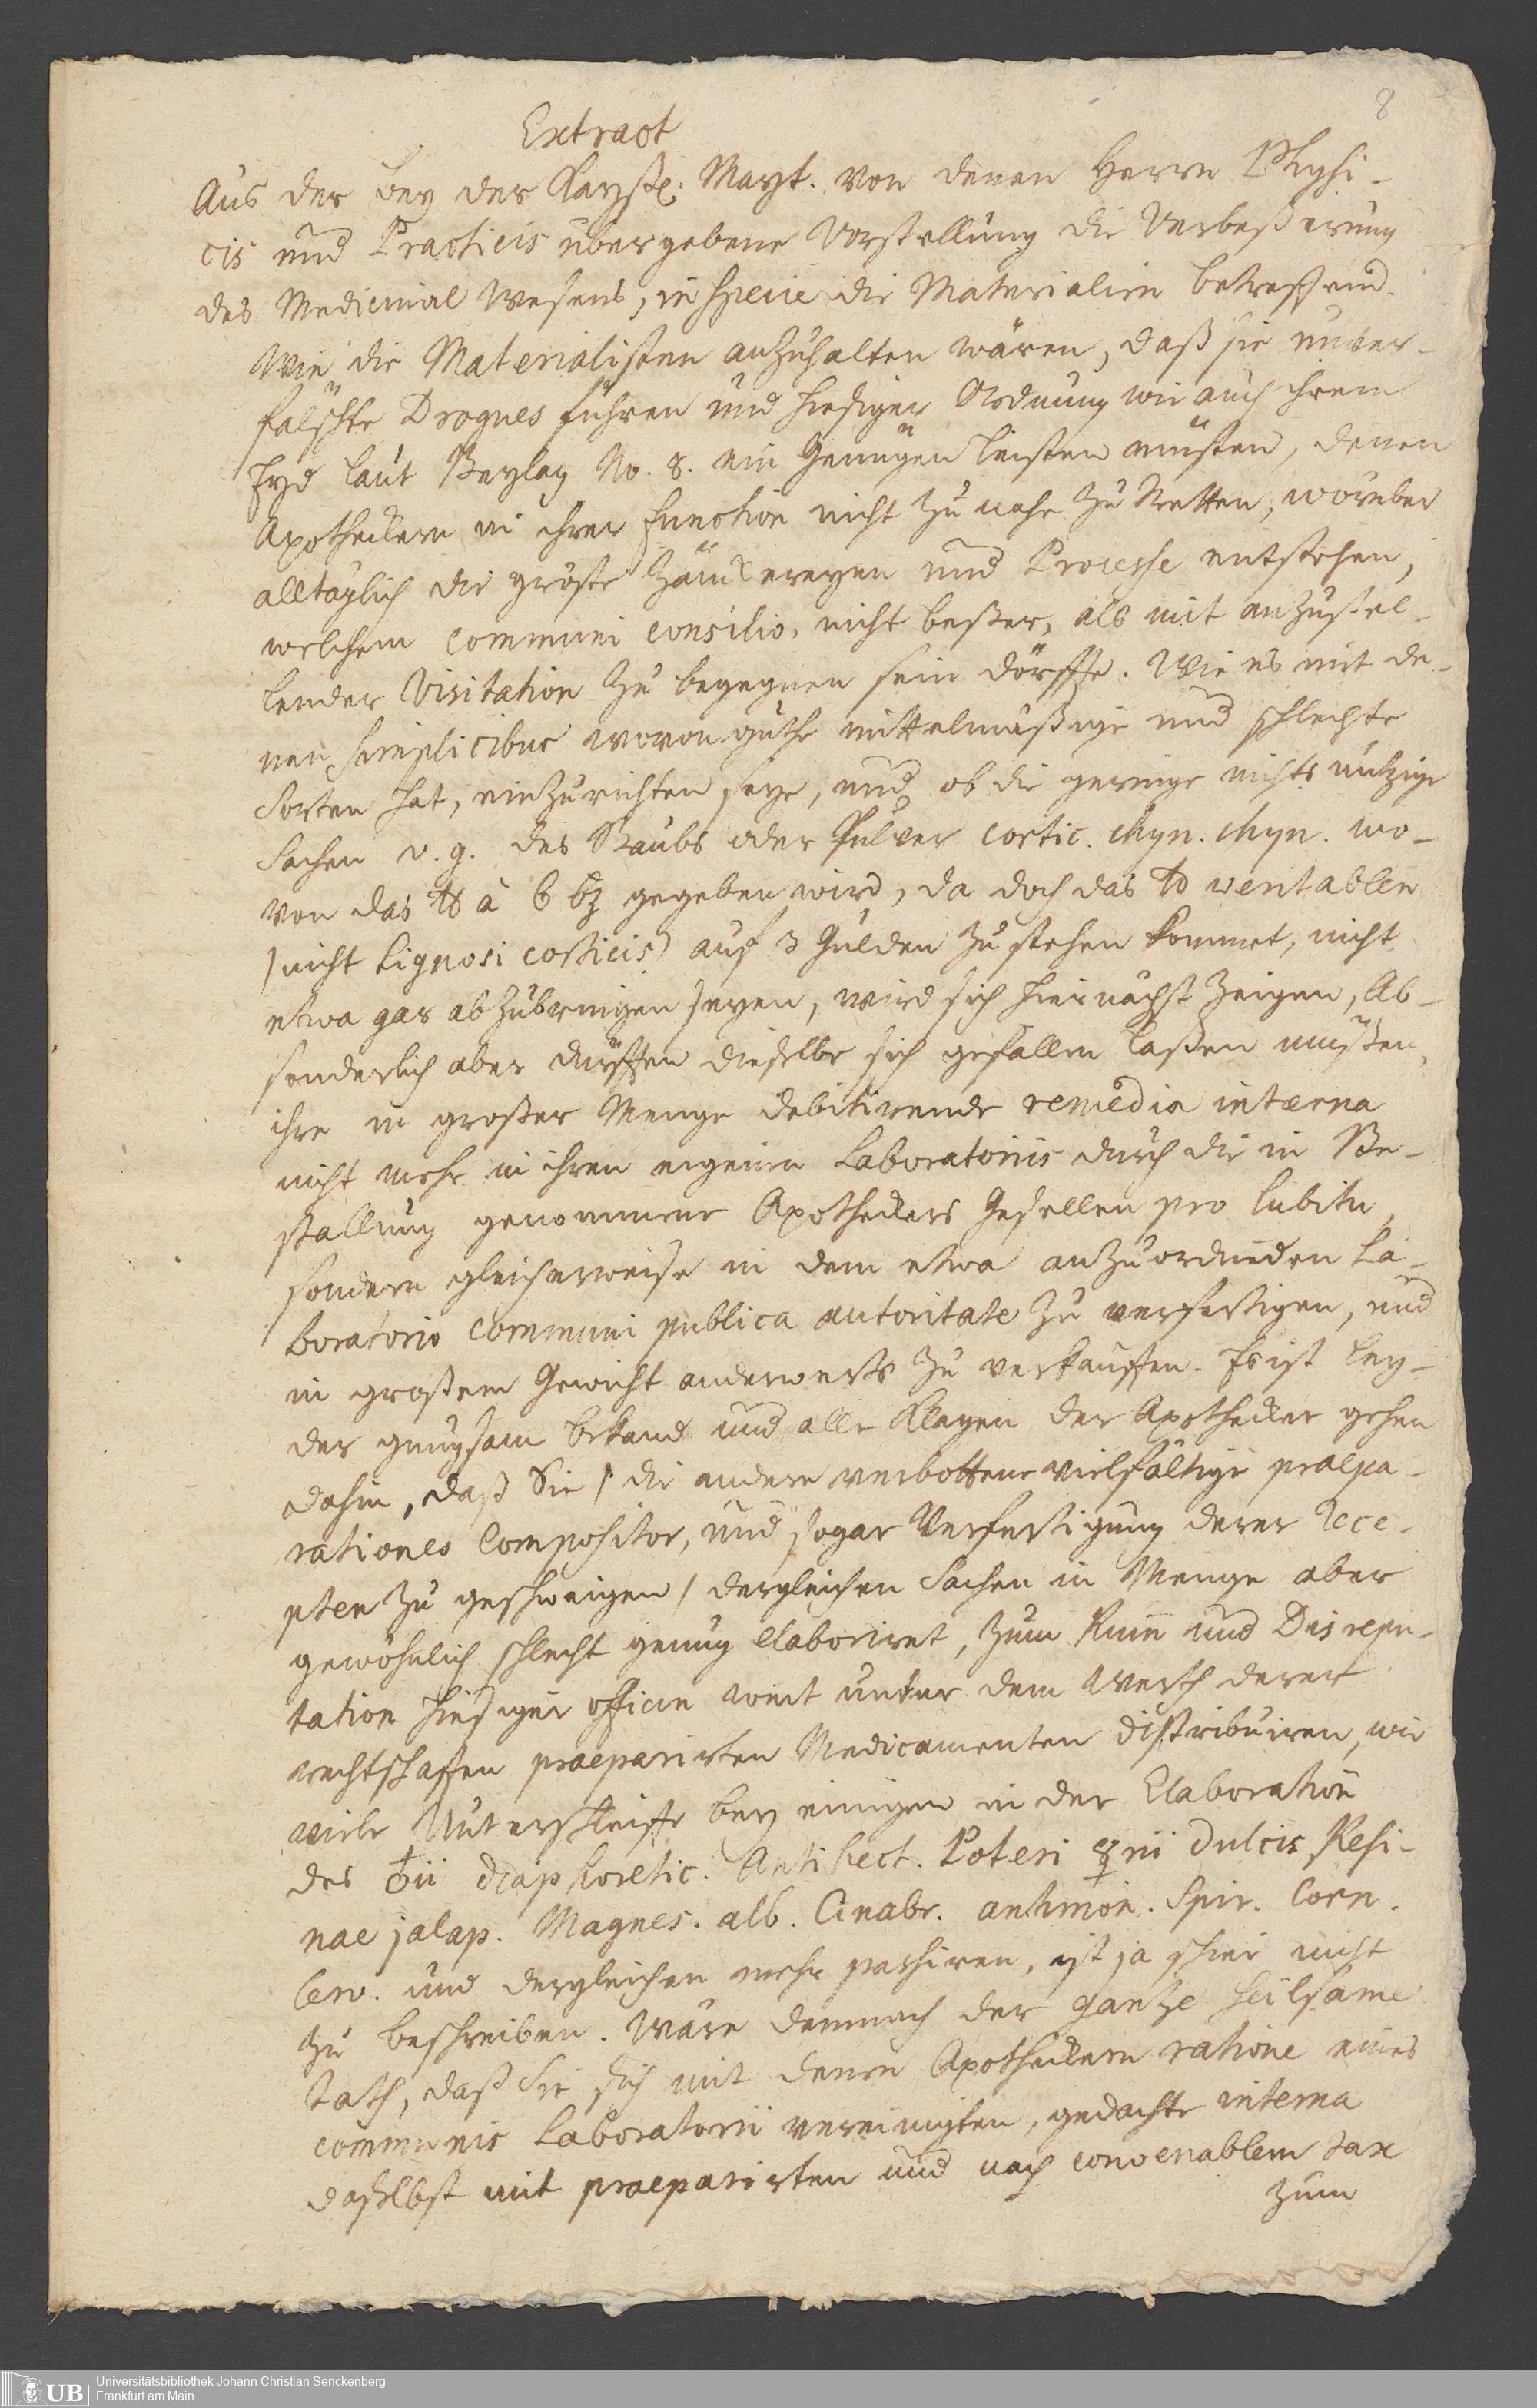 8
Extract
Aus der bey der Kayßl. Mayt. von denen Herrn Physi-
cis und Practicis übergebene Vorstellung die Verbeßerung
des Medicinal Wesens, in specie die Materialien betreffend.
Wie die Materialisten anzuhalten wären, daß sie unver-
fälschte Drogues führen und hiesiger Ordnung wie auch ihrem
Eyd laut Beylag No. 8. ein Genügen leisten müsten, denen
Apotheckern in ihrer function nicht zu nahe zu tretten, worüber
alltäglich die gröste Zänckereyen und Processe entstehen,
welchem communi consilio, nicht beßer, als mit anzustel-
lender Visitation zu begegnen sein dörffte. Wie es mit de-
nen Simplicibus wovon guthe mittelmäßige und schlechte
Sorten hat, einzurichten seye, und ob die geringe nichts nützige
Sachen v. g. des Staubs oder Pulver cortic. chyn. chyn. wo-
von das ℔ à 6 bz gegeben wird, da doch das ℔ veritablen
(nicht Lignosi corticis) auf 3 Gulden zu stehen kommet, nicht
etwa gar abzubringen seyen, wird sich hiernächst zeigen, Ab-
sonderlich aber dürfften dieselbe sich gefallen laßen müßen,
ihre in großer Menge debitirende remedia interna
nicht mehr in ihren eigenen Laboratoriis durch die in Be-
stallung genommene Apotheckers Gesellen pro lubitu,
sondern gleicherweise in dem etwa anzuordnenden La-
boratorio communi publica autoritate zu verfertigen, und
in großem Gewicht anderwerts zu verkauffen. Es ist ley-
der gnugsam bekand und alle Klagen der Apothecker gehen
dahin, daß Sie / die andere verbottene vielfältige praepa-
rationes Compositor, und sogar Verfertigung derer Rece-
pten zu geschweigen / dergleichen Sachen in Menge aber
gewöhnlich schlecht genug elaboriret, zum Ruin und Disrepu-
tation hiesiger officin weit unter dem Werth derer
rechtschaffen praeparirten Medicamenten distribuiren, wie
viele Unterschleiffe bey einigen in der Elaboration
des ♁ii diaphoretic. Antihect. Poteri ☿rii dulcis Resi-
nae jalap. Magnes. alb. Cinabr. antimon. Spir. Corn.
Cerv. und dergleichen mehr passiren, ist ja schier nicht
zu beschreiben. Wäre demnach der gantze heilsame
Rath, daß Sie sich mit denen Apotheckern ratione eines
communis Laboratorii vereinigten, gedachte interna
daselbst mit praeparirten und nach convenablem tax
zum
UB Universitätsbibliothek Johann Christian Senckenberg
Frankfurt am Main